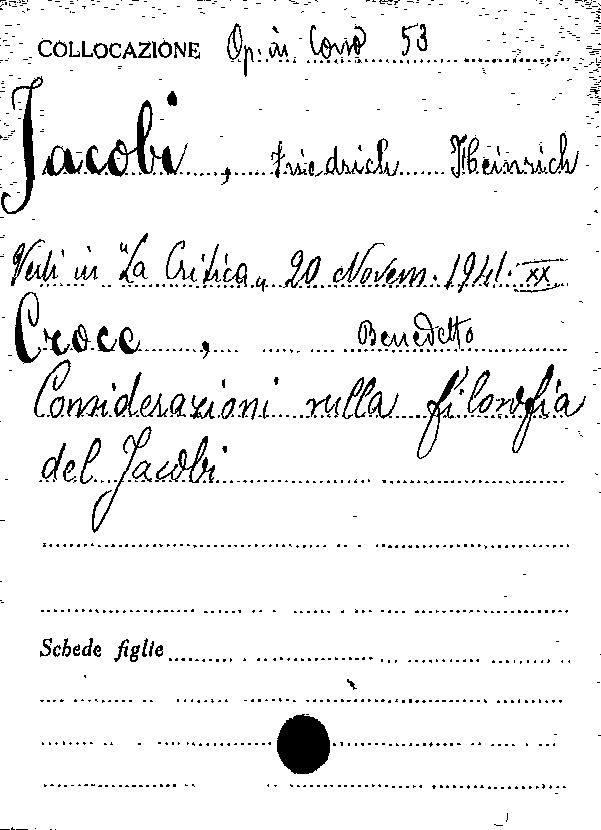 COLLOCAZIONE Op. in Corso 53
Jacobi, Friedrich Heinrich
Vedi in "La Critica„ 20 Novem. 1941. XX
Croce, Benedetto
Considerazioni sulla filosofia
del Jacobi
Schede figlie